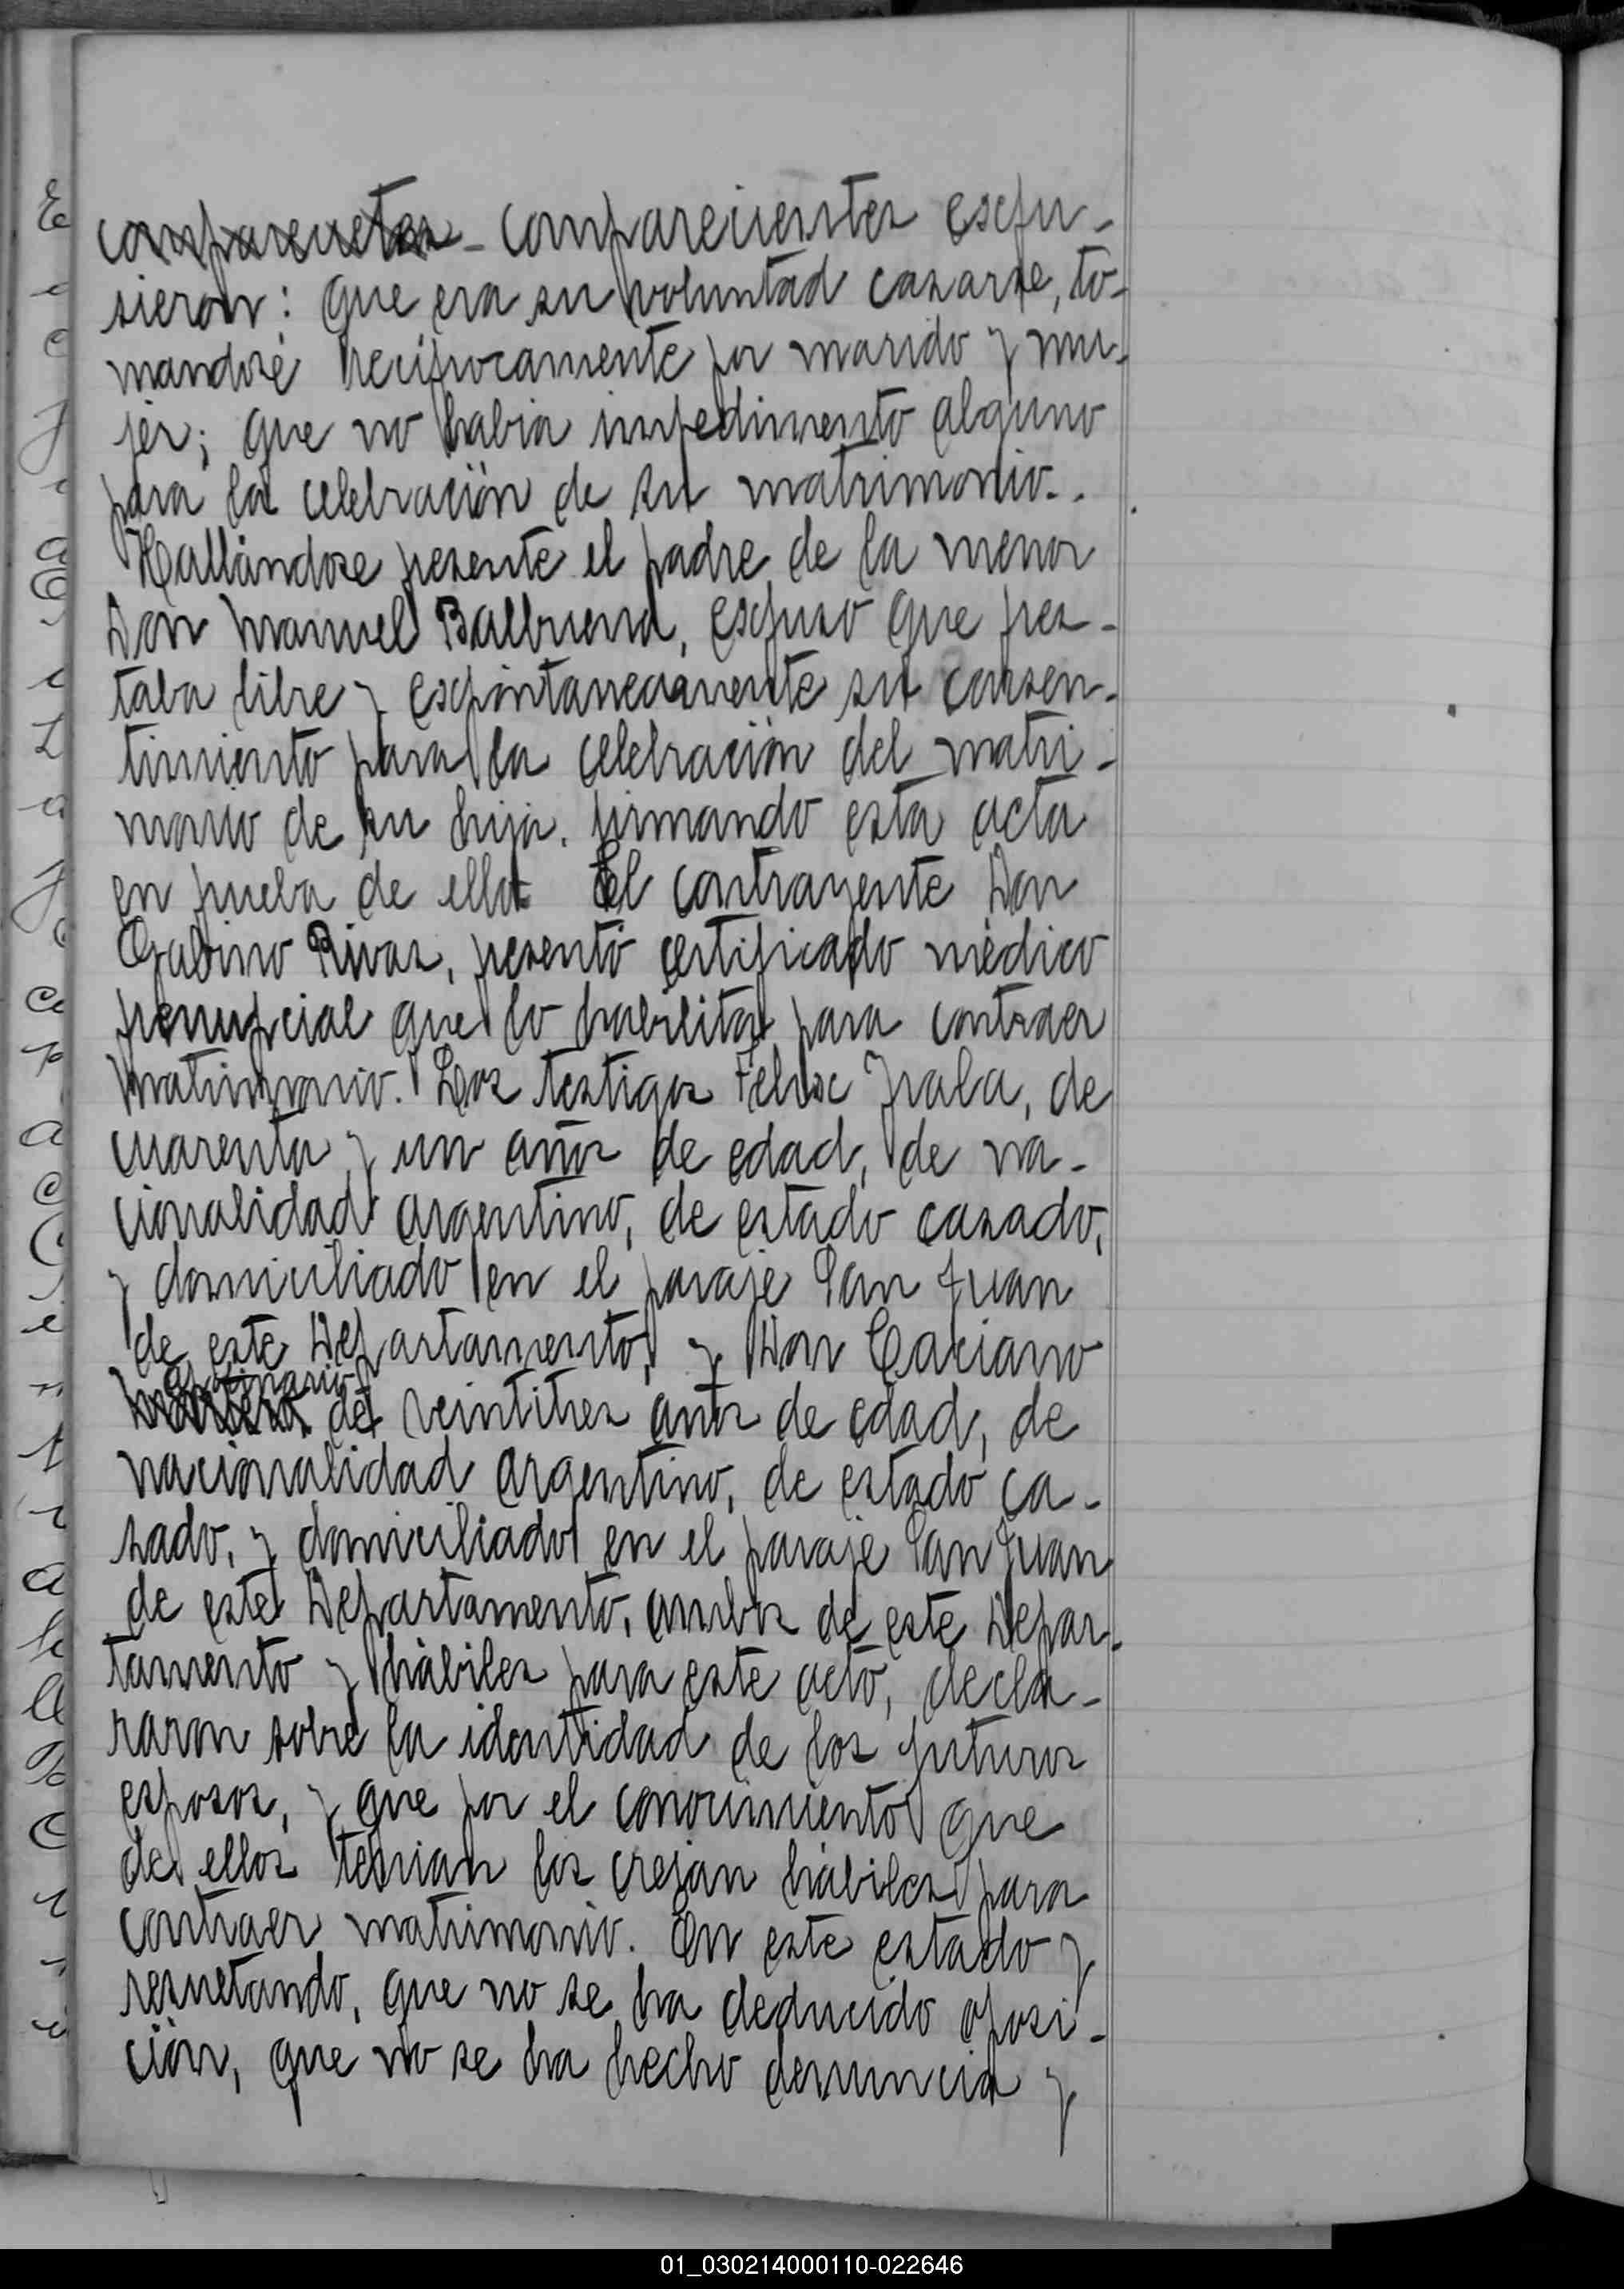 comparecientes - comparecientes espu-
sieron: Que era su voluntad casarse, to-
mandose reciprocamente por marido y mu-
jer; que no habia impedimento alguno
para la celebración de su matrimonio.
Hallándose presente el padre de la menor
Don Manuel Balbuena, espuso que pres-
taba libre y espontaneamente su consen-
timiento para la celebración del matri-
monio de su hija. firmando esta acta
en prueba de ello. El contrayente Don
Gabino Rivas, presentó certificado médico
prenupcial que lo habilita para contraer
matrimonio. Los testigos Felix
cuarenta y un años de edad, de na-
cionalidad argentino, de estado casado,
y domiciliado en el paraje San Juan
de este Departamento, y Don
de veintitres años de edad, de
nacionalidad argentino, de estado ca-
sado, y domiciliado en el paraje San Juan
de este Departamento, ambos de este Depar-
tamento y hábiles para este acto, decla-
raron sobre la identidad de los futuros
esposos, y que por el conocimiento que
de ellos tenian los creían hábiles para
contraer matrimonio. En este estado y
resuetando, que no se ha deducido oposi-
ción, que no se ha hecho denuncia y
01_030214000110-022646